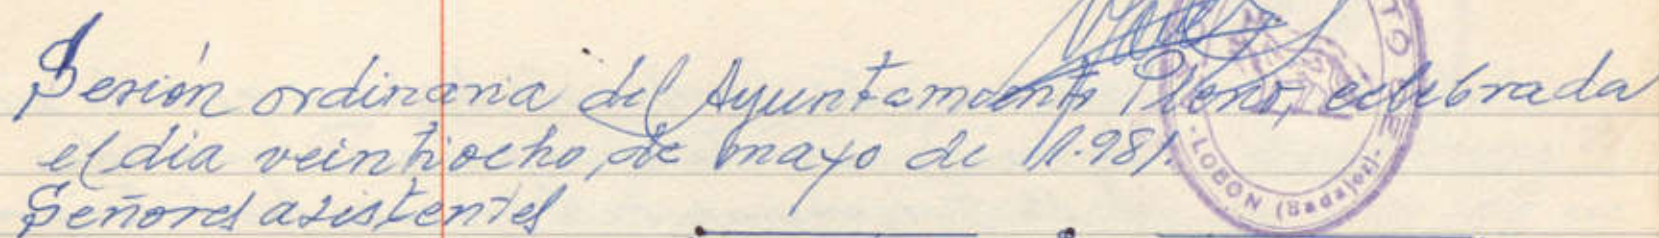 Sesión ordinaria del Ayuntamiento Pleno, celebrada
el día veintiocho, de mayo de 1.981.
Señores asistentes
TO DE
-LOBÓN (Badajoz)-